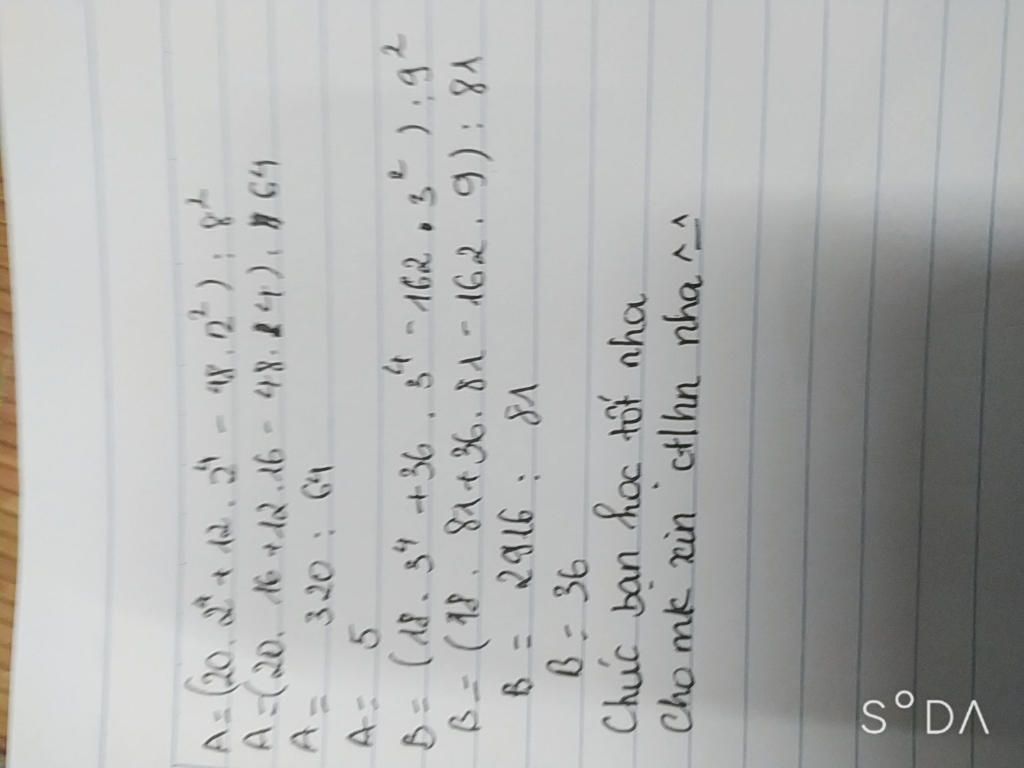 A=(20.2⁴+12.2⁴-48.2²):8²
A=(20.16+12.16-48.4):64
A= 320:64
A= 5
B=(18.3⁴+36.3⁴-162.3²):9²
B=(18.81+36.81-162.9):81
B= 2916:81
B=36
Chúc bạn học tốt nha
Cho mk xin ctlhn nha ^_^
SODA